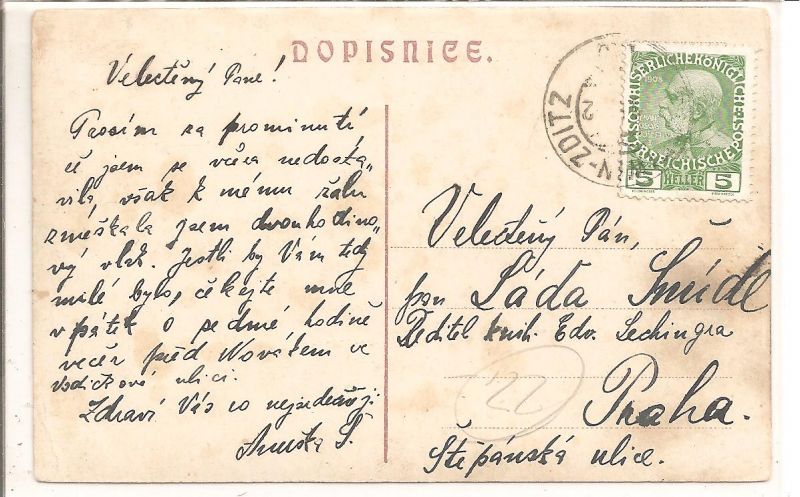 DOPISNICE.
Velectěný Pane!
Prosím za prominutí
že jsem se včera nedosta„
vila, však k mému žalu
zmeškala jsem dvouhodino„
vý vlak. Jestli by Vám tedy
milé bylo, čekejte mne
v pátek o sedmé hodině
večer před Novákem ve
Vodičkové ulici.
Zdraví Vás co nejsrdečněji
Š.
ZDITZ
1908
5 HELLER 5
Velectěný Pán,
pan Láďa Šmídl
Ředitel knih. Edv.
Praha.
Štěpánská ulice.
22